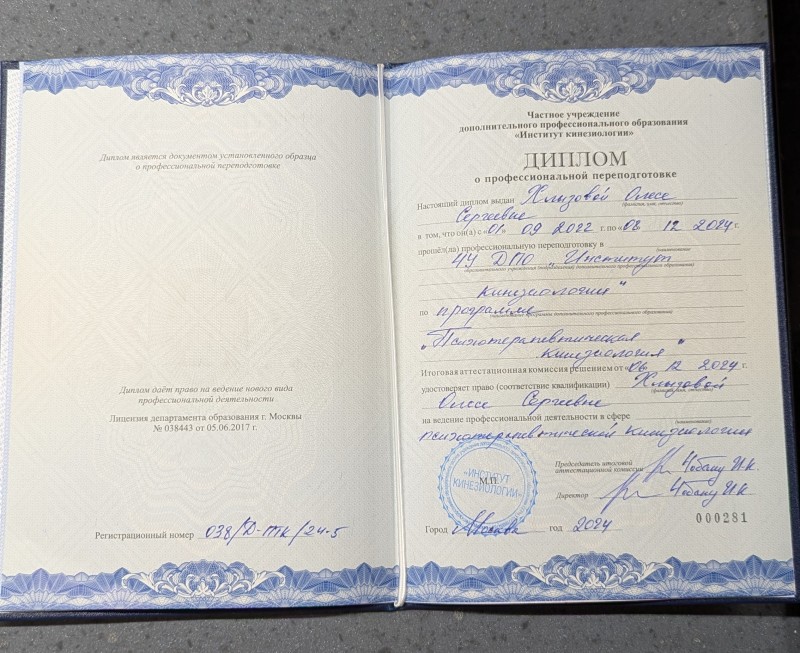 Диплом является документом установленного образца
о профессиональной переподготовке
Диплом даёт право на ведение нового вида
профессиональной деятельности
Лицензия департамента образования г. Москвы
№ 038443 от 05.06.2017 г.
Регистрационный номер 038/Д-ПТК/24-5
Частное учреждение
дополнительного профессионального образования
«Институт кинезиологии»
ДИПЛОМ
о профессиональной переподготовке
Настоящий диплом выдан Хлызовой Олесе
(фамилия, имя, отчество)
Сергеевне
в том, что он(а) с «01» 09 2022 г. по «08 12 2024 г.
прошёл(ла) профессиональную переподготовку в
(наименование)
ЧУ ДПО „Институт
образовательного учреждения (подразделения) дополнительного профессионального образования)
кинезиологии“
по программе
программы дополнительного профессионального образования)
„Психотерапевтическая
кинезиология“
Итоговая аттестационная комиссия решением от «06 12 2024 г.
удостоверяет право (соответствие квалификации) Хлызовой
(фамилия, имя, отчество)
Олесе Сергеевне
на ведение профессиональной деятельности в сфере
(наименование)
психотерапевтической кинезиологии
Председатель итоговой
аттестационной комиссии Чобану И.К.
Директор Чобану И.К
М.П.
«ИНСТИТУТ
КИНЕЗИОЛОГИИ»
000281
Город Москва год 2024